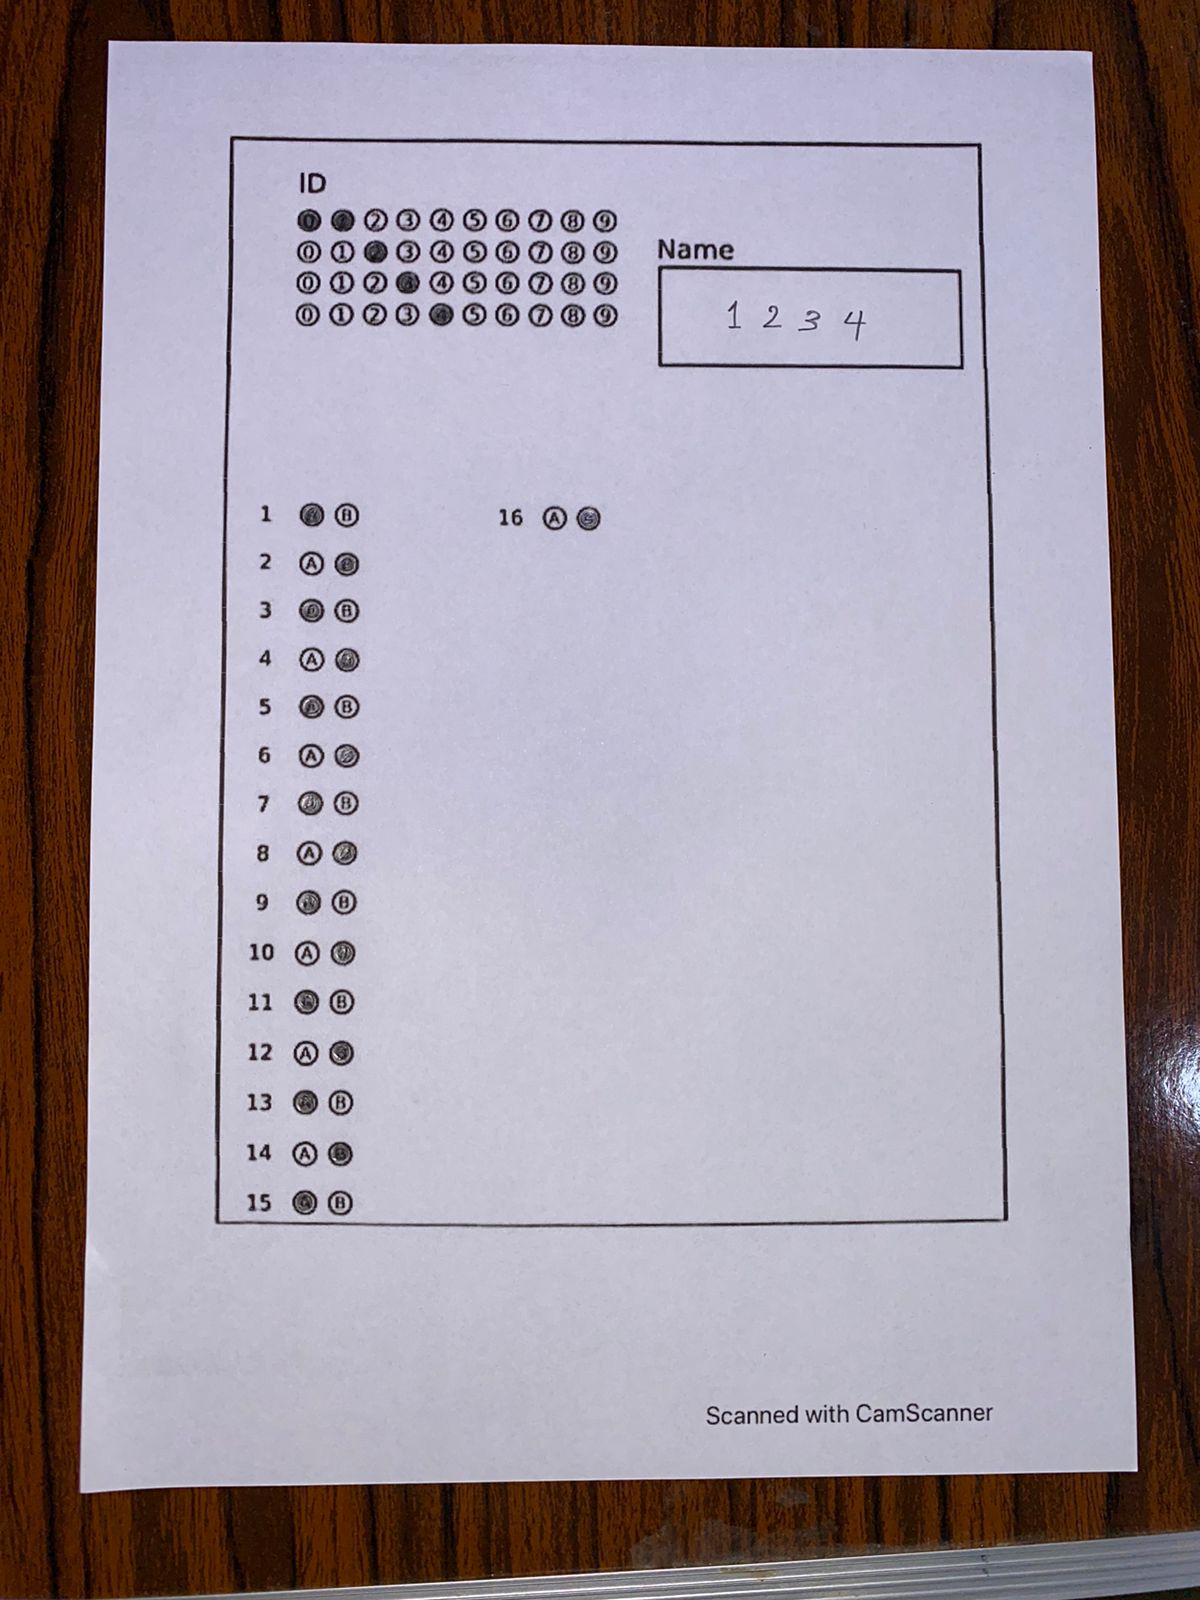 ID
0 1 2 3 4 5 6 7 8 9
0 1 2 3 4 5 6 7 8 9
0 1 2 3 4 5 6 7 8 9
0 1 2 3 4 5 6 7 8 9
Name
1 2 3 4
1 A B
2 A B
3 A B
4 A B
5 A B
6 A B
7 A B
8 A B
9 A B
10 A B
11 A B
12 A B
13 A B
14 A B
15 A B
16 A B
Scanned with CamScanner